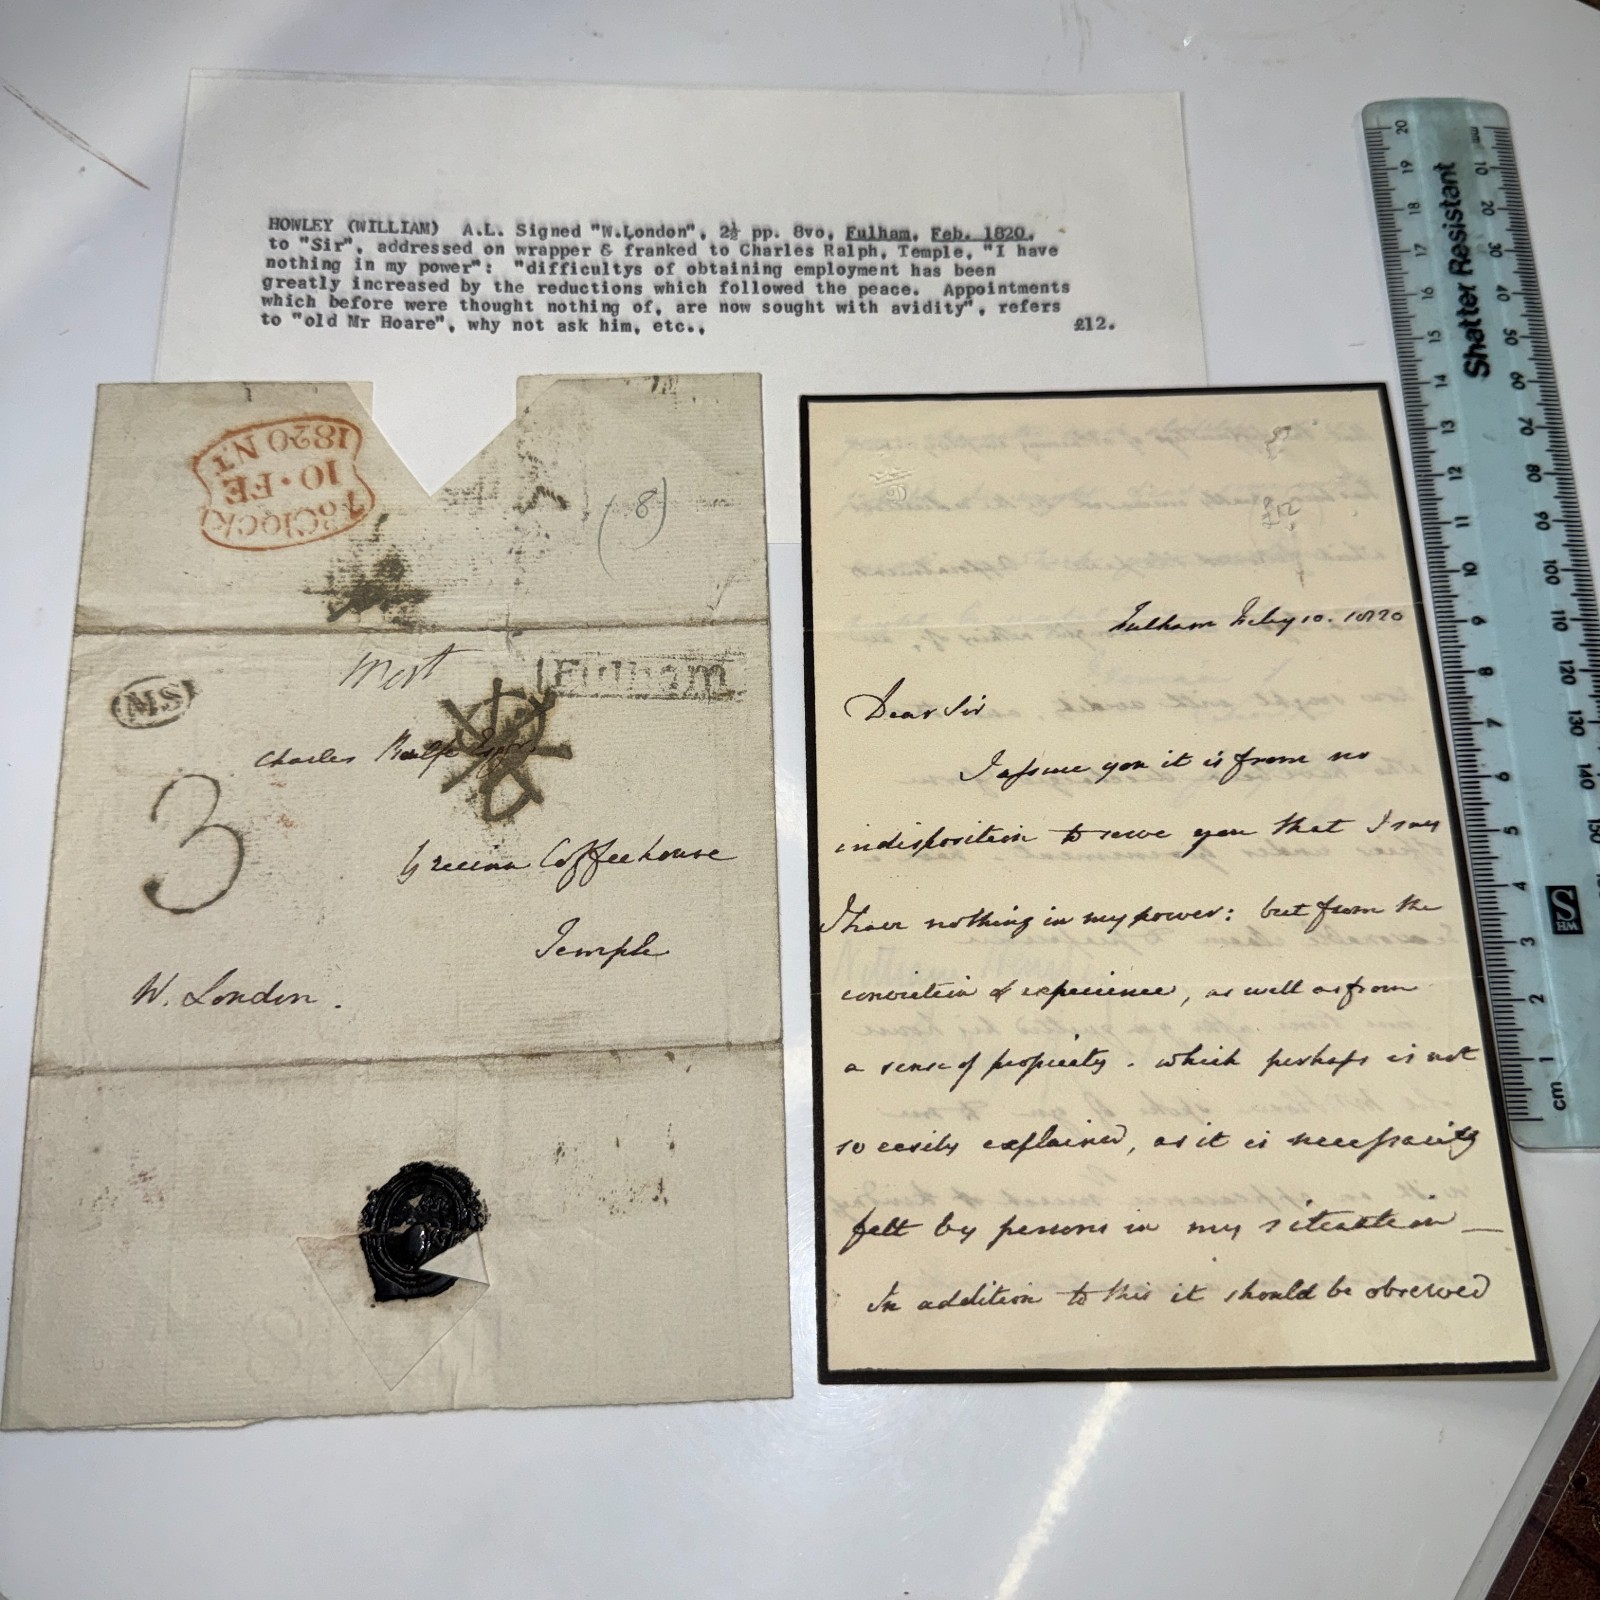 HOWLEY (WILLIAM) A.L. Signed "W.London", 2½ pp. 8vo, Fulham, Feb. 1820,
to "Sir", addressed on wrapper & franked to Charles Ralph, Temple, "I have
nothing in my power": "difficultys of obtaining employment has been
greatly increased by the reductions which followed the peace. Appointments
which before were thought nothing of, are now sought with avidity", refers
to "old Mr Hoare", why not ask him, etc., £12.
7o'Clock
10·FE
1820 NT
(8)
Fulham
MS
Charles Esqre
3
Grecian Coffeehouse
Temple
W. London.
£12
Fulham Feby 10. 1820
Dear Sir
I assure you it is from no
indisposition to serve you that I say
I have nothing in my power: but from the
conviction of experience, as well as from
a sense of propriety. which perhaps is not
so easily explained, as it is necessarily
felt by persons in my situation —
In addition to this it should be observed
Shatter Resistant
mm
10
20
30
40
50
60
70
80
90
100
110
120
130
140
150
20
19
18
17
16
15
14
13
12
11
10
9
8
7
6
5
4
3
2
1
cm
S
WH